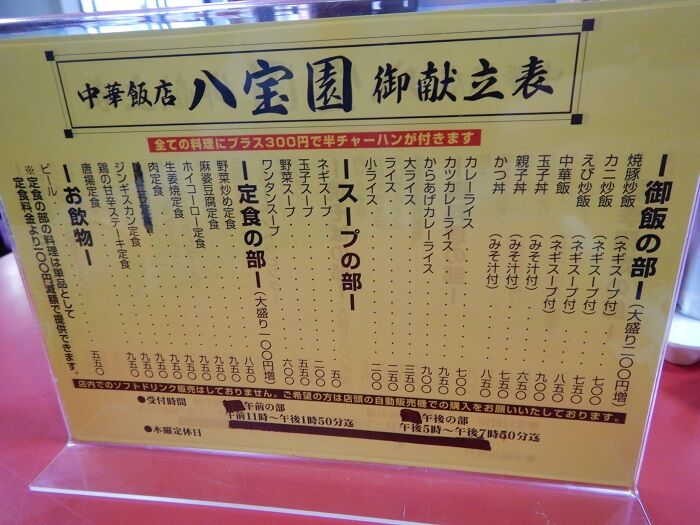 中華飯店 八宝園 御献立表
全ての料理にプラス300円で半チャーハンが付きます
ー御飯の部ー(大盛り二〇〇円増)
焼豚炒飯 (ネギスープ付)
カニ炒飯 (ネギスープ付)
えび炒飯 (ネギスープ付)
中華飯 (ネギスープ付)
玉子丼 (みそ汁付)
親子丼 (みそ汁付)
かつ丼 (みそ汁付) 八五〇
カレーライス 七〇〇
カツカレーライス 九〇〇
からあげカレーライス 九五〇
大ライス 三五〇
ライス 二〇〇
小ライス
ースープの部ー
ネギスープ 五〇
玉子スープ 二〇〇
野菜スープ 五五〇
ワンタンスープ 六〇〇
ー定食の部ー(大盛り一〇〇円増)
野菜炒め定食 八五〇
麻婆豆腐定食 九五〇
ホイコーロー定食 九五〇
生姜焼定食 九五〇
肉定食 九五〇
ジンギスカン定食 九五〇
鶏の甘辛ステーキ定食 九五〇
唐揚定食 九五〇
ーお飲物ー
ビール 五五〇
※定食の部の料理は単品として
定食料金より一〇〇円減額で提供できます。
店内でのソフトドリンク販売はしておりません。ご希望の方は店頭の自動販売機での購入をお願いいたしております。
●受付時間 午前の部 午後の部
午前11時〜午後1時50分迄 午後5時〜午後7時40分迄
●木曜定休日